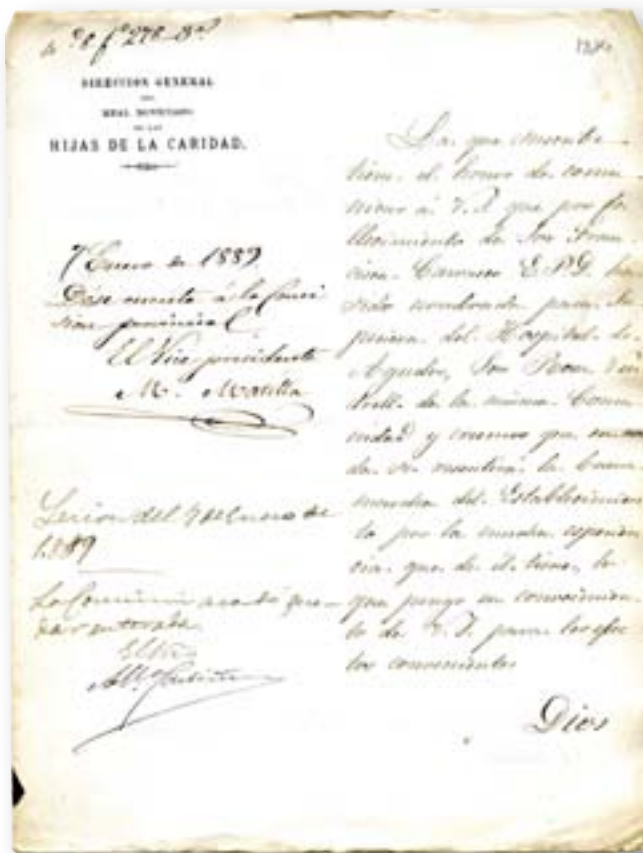 DIRECCION GENERAL
DEL
REAL NOVICIADO
DE LAS
HIJAS DE LA CARIDAD.
7 Enero de 1889
Dése cuenta á la Comi
sion provincial
El Vice presidente
M.
Sesion del 9 de Enero de
1889
La Comision acordó que
dar enterada
La que suscribe
tiene el honor de comu
nicar á V. S. que por fa
llecimiento de Sor Fran
cisca E.P.D. ha
sido nombrada para Su
periora del Hospital de
Agudos, Sor Rosa
de la misma Comu
nidad y creemos que
da se resentirá la buena
marcha del Establecimien
to por la mucha esperien
cia que de él tiene, lo
que pongo en conocimien
to de V. S. para los efec
tos convenientes
Dios